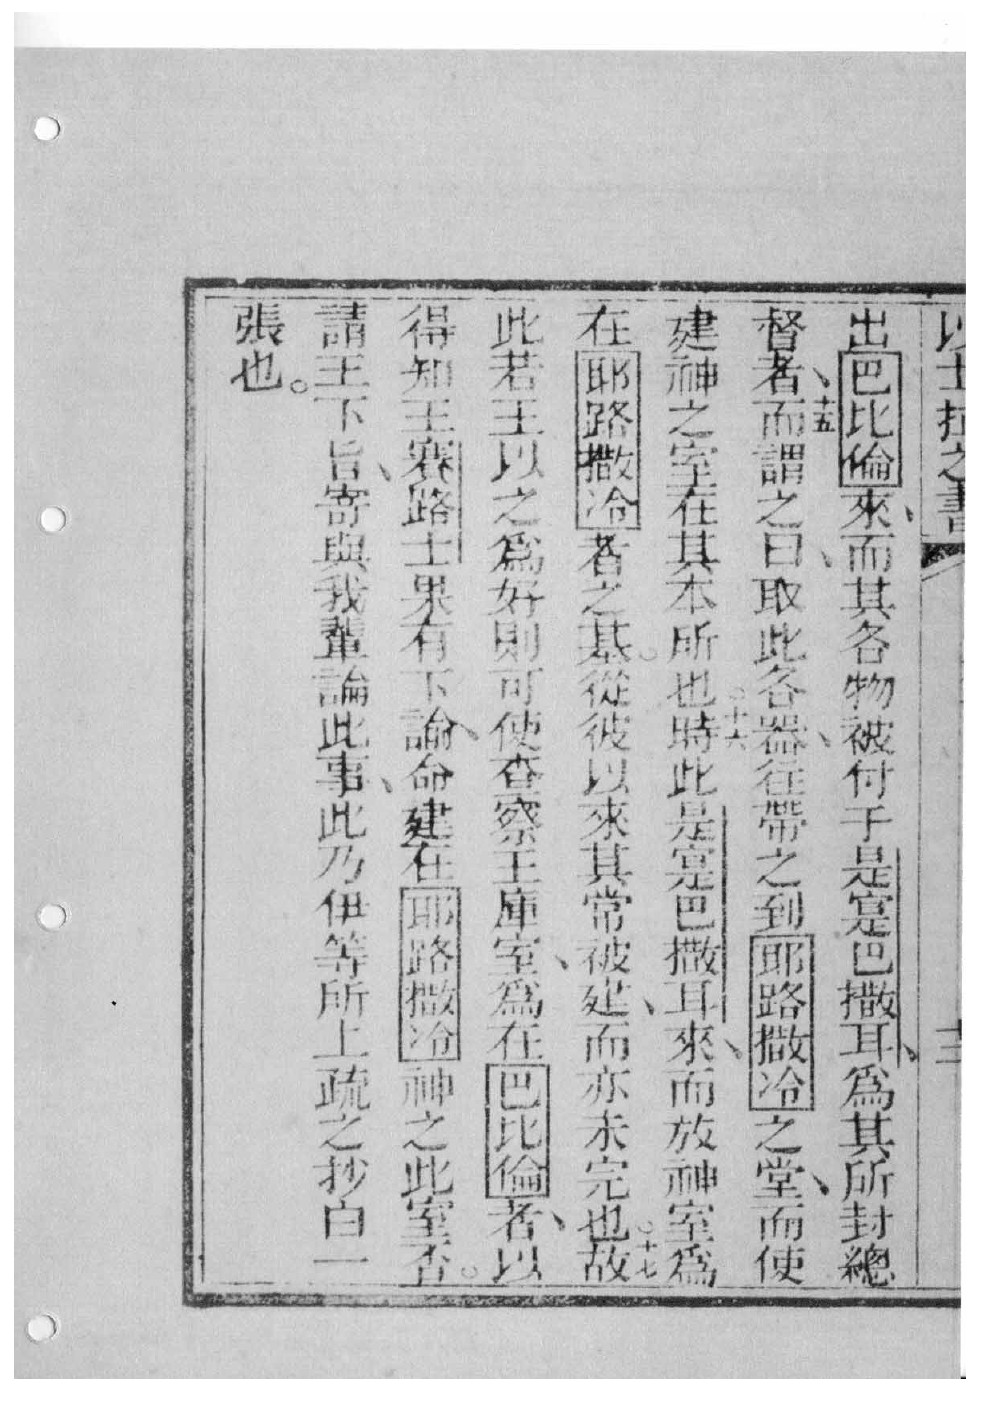 以士拉之書 十三
出巴比倫來、而其各物被付于是寔巴撒耳、爲其所封總
督者、十五而謂之曰、取此各器、往帶之到耶路撒冷之堂、而使
建神之室在其本所也。十六時此是寔巴撒耳來、而放神室爲
在耶路撒冷者之基。從彼以來其常被建、而亦未完也。十七故
此若王以之爲好則可使查察王庫室、爲在巴比倫者、以
得知王賽路士果有下諭、命建在耶路撒冷神之此室否。
請王下旨、寄與我輩論此事、此乃伊等所上疏之抄白一
張也。